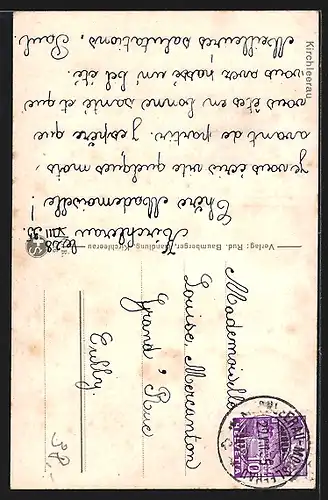 Kirchleerau
Kirchleerau
le 28 VIII 33
Chère Mademoiselle!
je vous écris vite quelques mots,
avant de partir. J'espère que
vous êtes en bonne santé et que
vous avez passé un bel été.
Meilleures salutations, Paul.
Verlag: Rud. Baumberger, Handlung, Kirchleerau
Mademoiselle
Louise Mercanton
Grand' Rue
Cully.
10
38.-